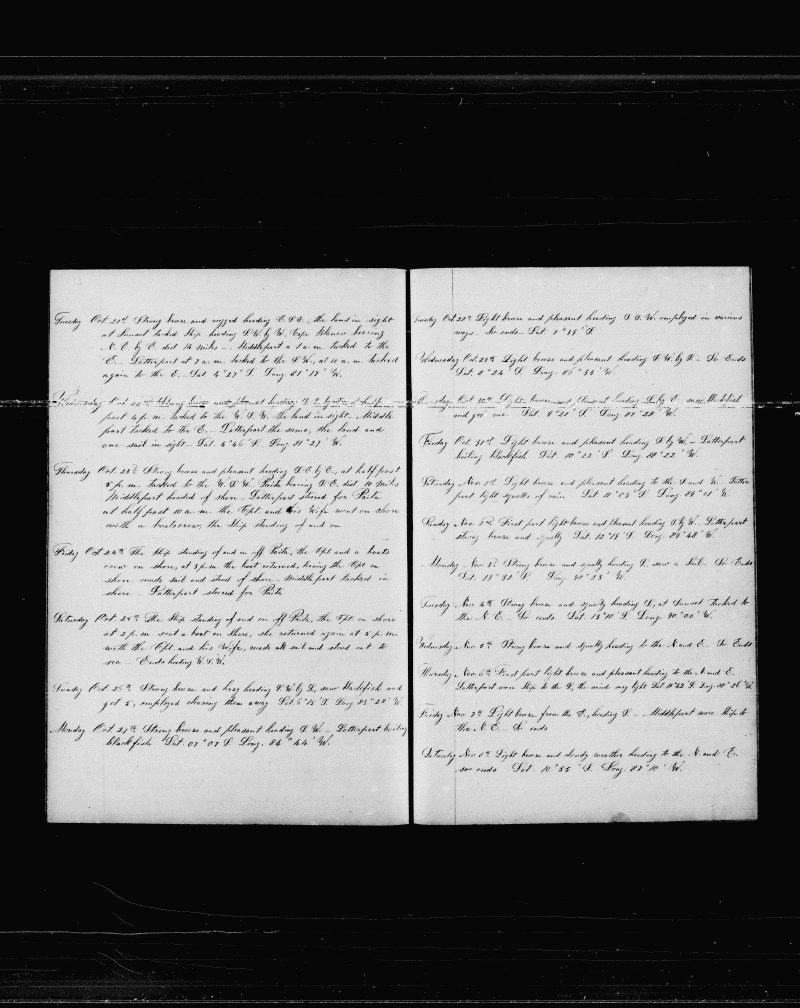 Tuesday Oct. 21st Strong breeze and rugged heading E.S.E., the land in sight
at Sunset tacked Ship heading S.W. by W. Cape Blanco bearing
N.E. by E. dist 14 Miles - Middlepart at 1 a.m. tacked to the
E. - Latterpart at 7 a.m. tacked to the S.W., at 10 a.m. tacked
again to the E. - Lat. 4°27' S. Long. 81°17' W.
Wednesday Oct. 22nd Strong breeze and pleasant heading at half
past 4 p.m. tacked to the W.S.W. the land in sight - Middle
part tacked to the E. - Latterpart the same, the land and
one sail in sight - Lat. 4°46' S. Long. 81°27' W.
Thursday Oct. 23rd Strong breeze and pleasant heading S.E. by E., at half past
5 p.m. tacked to the W.S.W. Paita bearing S.E. dist. 10 Miles
Middlepart headed of shore - Latterpart steered for Paita
at half past 10 a.m. the Cpt. and his Wife went on shore
with a boatscrew, the Ship standing of and on
Friday Oct 24th The Ship standing of and on off Paita, the Cpt and a boats
crew on shore, at 3 p.m. the boat returned, leaving the Cpt on
shore, made sail and stood of shore - Middlepart tacked in
shore - Latterpart steered for Paita
Saturday Oct. 25th The Ship standing of and on off Paita, the Cpt. on shore
at 2 p.m. sent a boat on shore, she returned again at 3 p.m.
with the Cpt. and his Wife, made all sail and stood out to
sea - Ends heading W.S.W.
Sunday Oct 26th Strong breeze and hazy heading S.W. by S., saw Blackfish and
got 5, employed cleaning them away Lat. 6°15' S. Long 83°28' W.
Monday Oct. 27th Strong breeze and pleasant heading S.W. - Latterpart boiling
blackfish Lat. 07°07' S. Long. 84°44' W.
Tuesday Oct. 28th Light breeze and pleasant heading S.S.W. employed in various
ways - So ends - Lat. 7°39' S.
Wednesday Oct. 29th Light breeze and pleasant heading S.W. by S. - So Ends
Lat. 8°24' S. Long. 86°33' W.
Thursday Oct. 30th Light breeze and pleasant heading S. by E. saw Blackfish
and got one Lat. 9°21' S. Long. 87°28' W.
Friday Oct. 31st Light breeze and pleasant heading S. by W. - Latterpart
boiling blackfish Lat. 10°13' S. Long. 88°22' W.
Saturday Nov. 1st Light breeze and pleasant heading to the S. and W. Latter
part light squalls of rain Lat. 11°03' S. Long. 89°01' W.
Sunday Nov. 2nd First part light breeze and pleasant heading S. by W. Latterpart
strong breeze and squally Lat. 12°15' S. Long. 89°48' W.
Monday Nov. 3d Strong breeze and squally heading S. saw a Sail - So Ends
Lat. 13°32' S. Long. 90°23' W.
Tuesday Nov. 4th Strong breeze and squally heading S., at Sunset Tacked to
the N.E. - So ends. Lat. 13°10' S. Long. 90°00' W.
Wednesday Nov. 5th Strong breeze and squally heading to the N. and E. - So Ends
Thursday Nov. 6th First part light breeze and pleasant heading to the N. and E.
Latterpart wore Ship to the S, the wind very light Lat. 11°42' S. Long. 88°26' W.
Friday Nov. 7th Light breeze from the E., heading S. - Middlepart wore Ship to
the N.E. - So ends
Saturday Nov. 8th Light breeze and steady weather heading to the N. and E.
so ends Lat. 10°55' S. Long. 87°10' W.